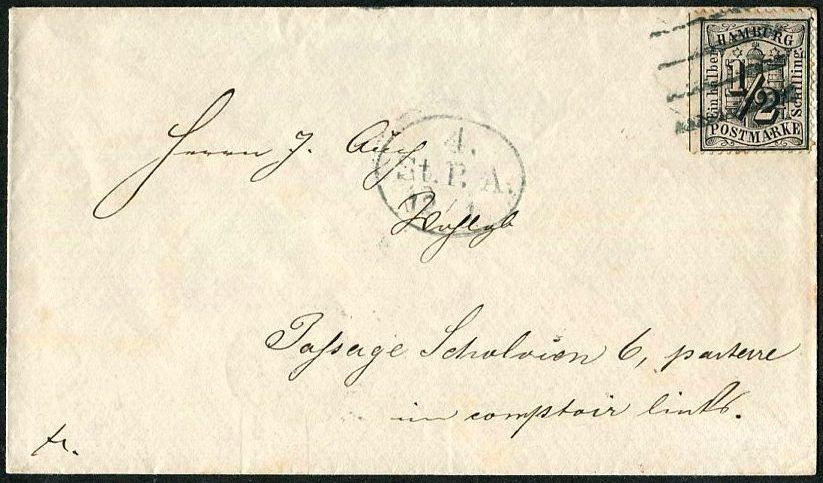 HAMBURG
Ein halber
1/2
Schilling.
POSTMARKE
4.
St. P. A.
Herrn J.
Wohlgb
Passage Scholvien 6, parterre
im comptoir links.
fr.